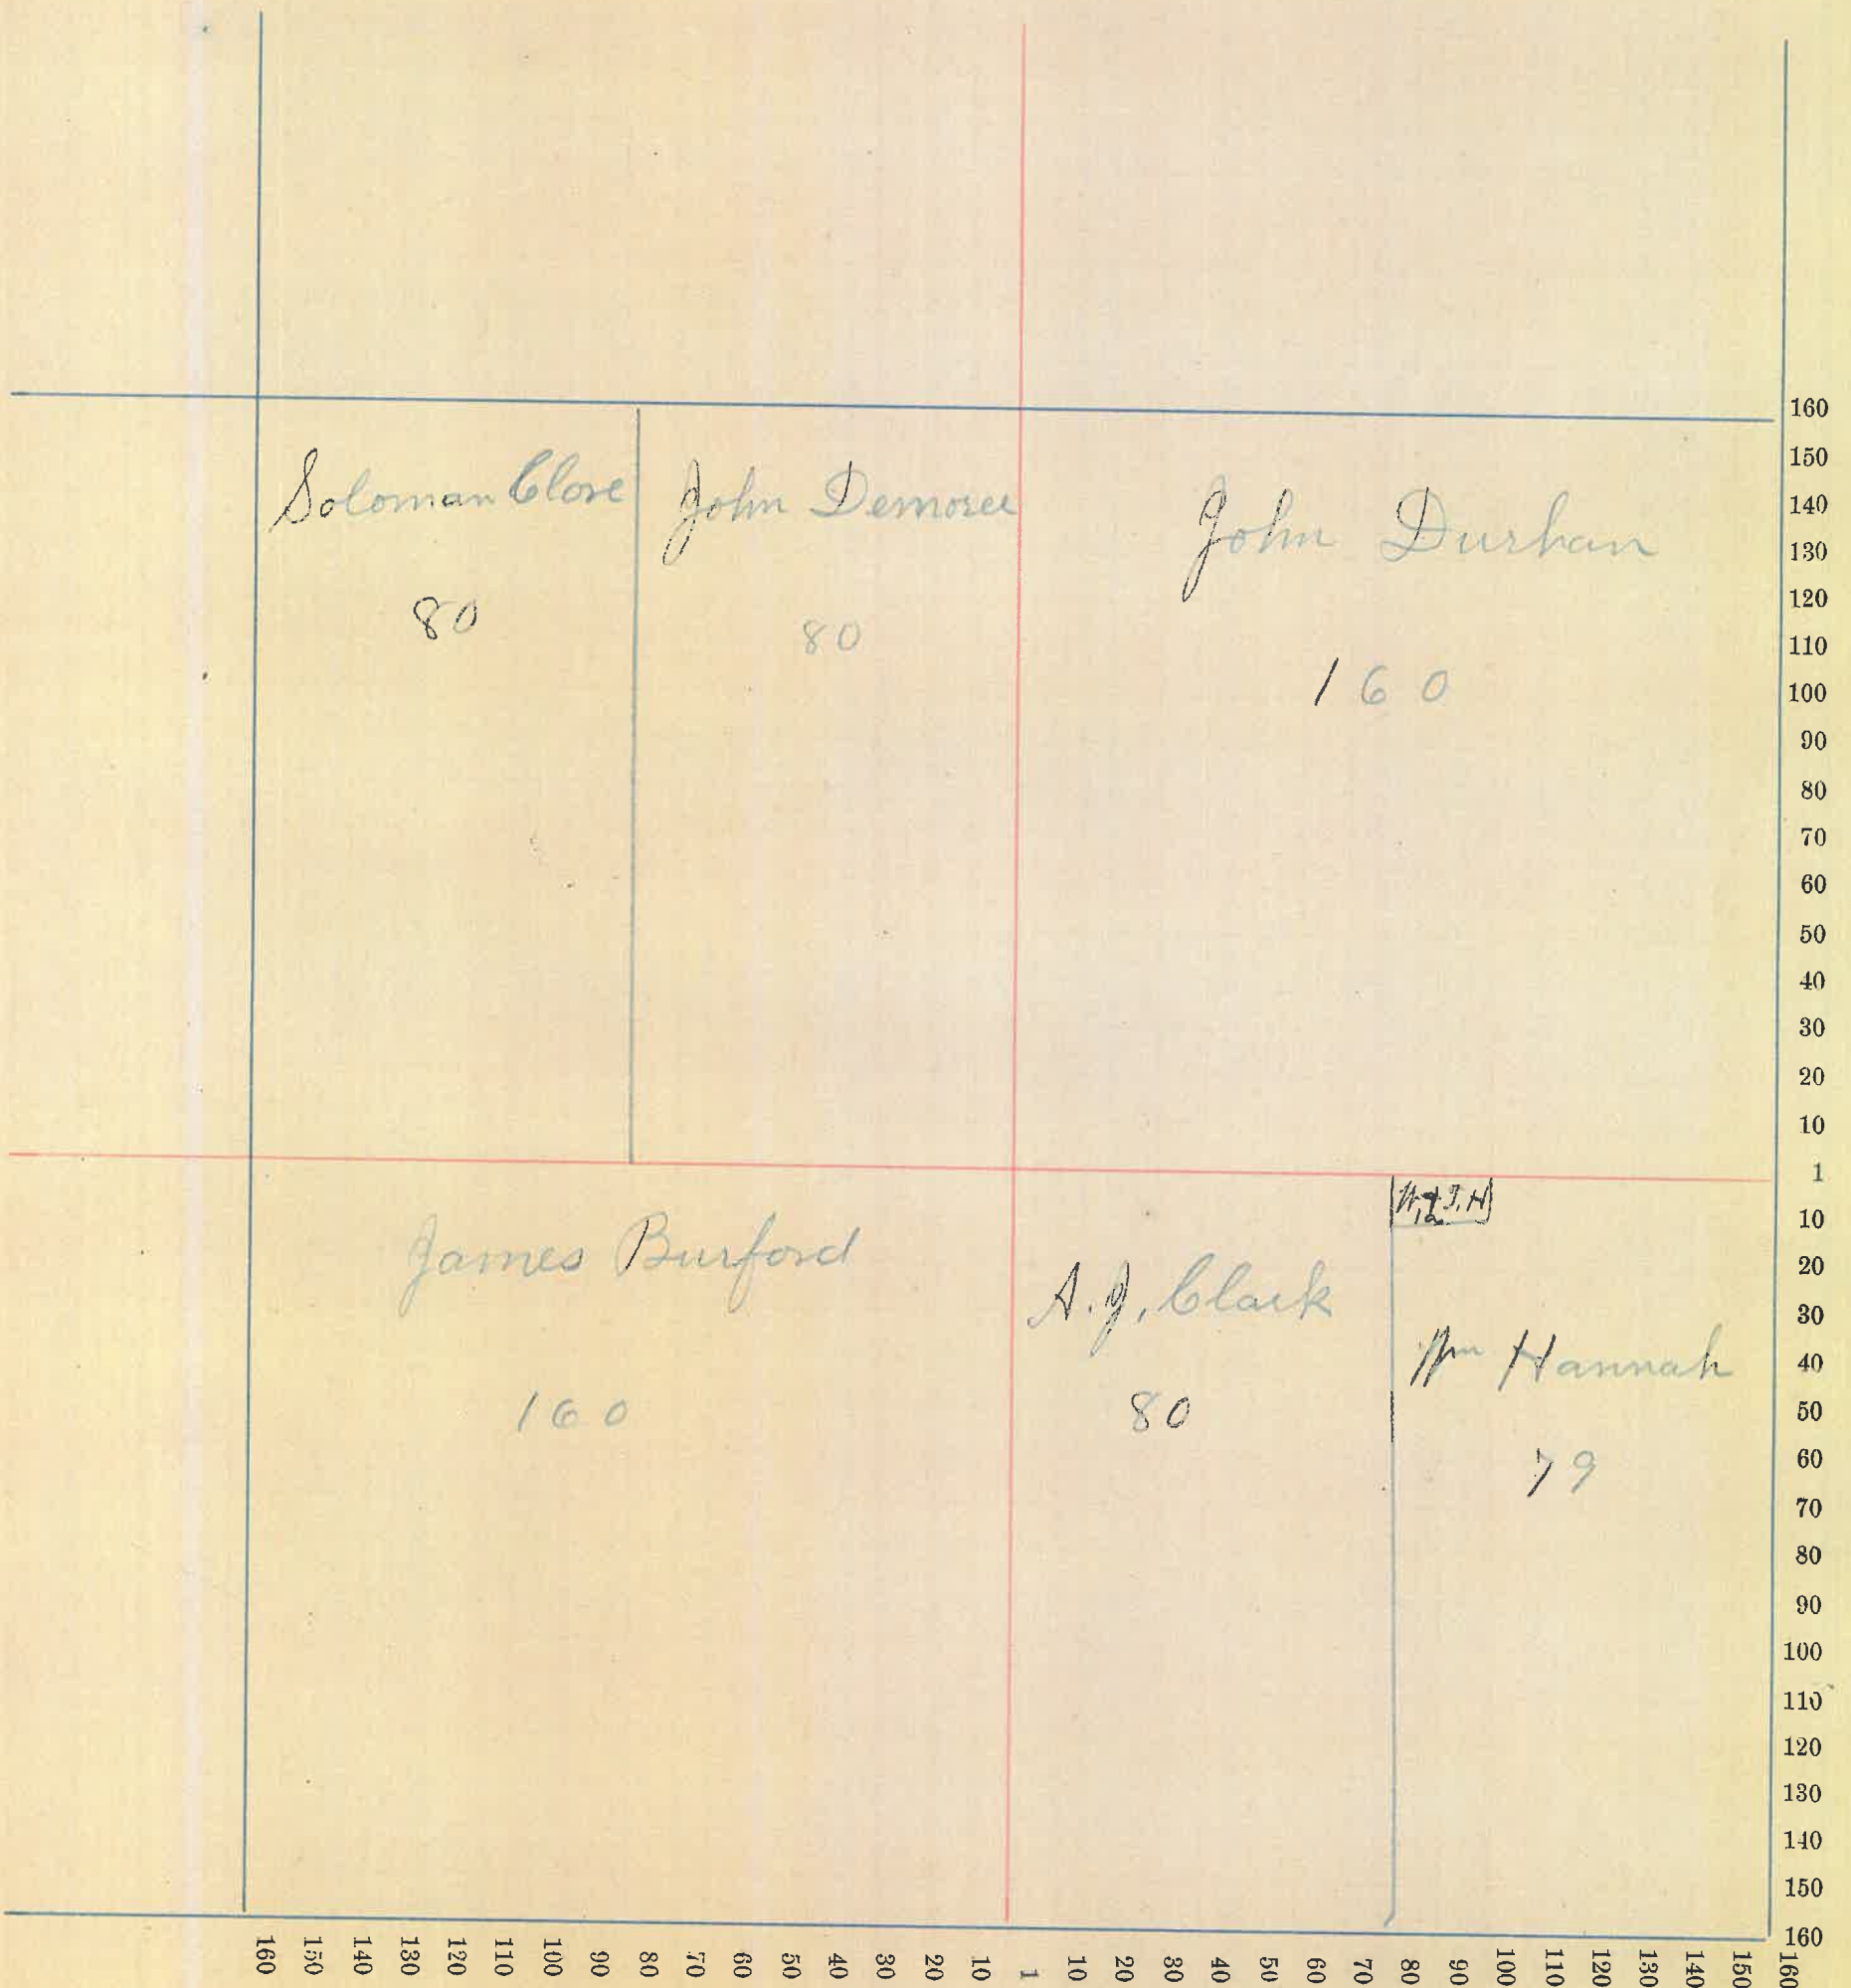 Soloman Clore
80
John Demoree
80
John Durhan
160
James Burford
160
A. J. Clark
80
Wm Hannah
79
160
150
140
130
120
110
100
90
80
70
60
50
40
30
20
10
1
10
20
30
40
50
60
70
80
90
100
110
120
130
140
150
160
160 150 140 130 120 110 100 90 80 70 60 50 40 30 20 10 1 10 20 30 40 50 60 70 80 90 100 110 120 130 140 150 160